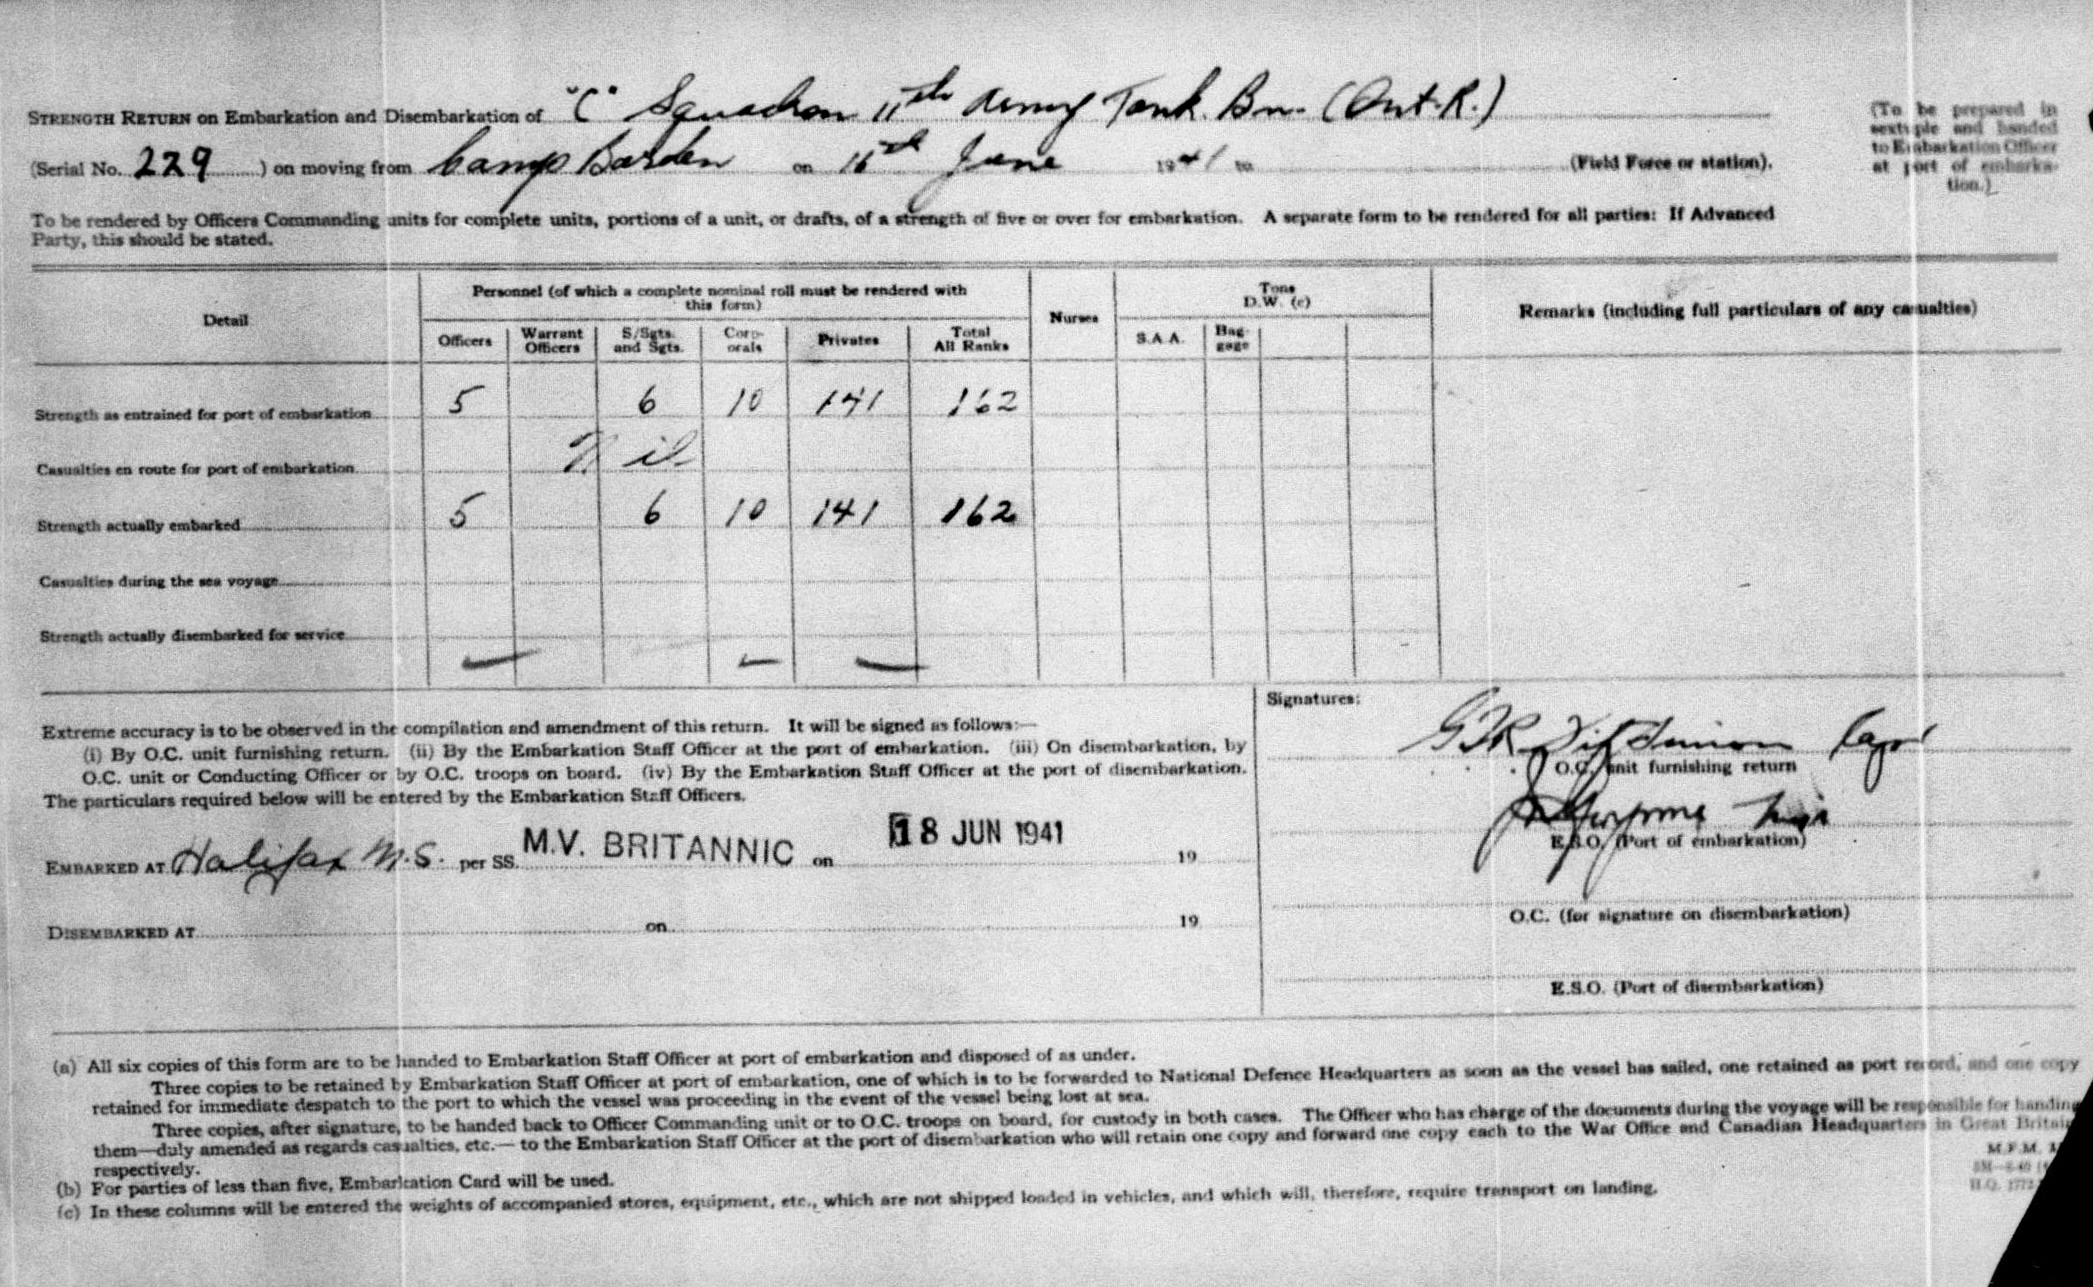 STRENGTH RETURN on Embarkation and Disembarkation of "C" Squadron 11th Army Tank. Bn. (Ont. R.)
(To be prepared in sextuple and handed to Embarkation Officer at port of embarkation.)
(Serial No. 229 ) on moving from Camp Borden on June 1941 to (Field Force or station).
To be rendered by Officers Commanding units for complete units, portions of a unit, or drafts, of a strength of five or over for embarkation. A separate form to be rendered for all parties: If Advanced
Party, this should be stated.
Detail
Personnel (of which a complete nominal roll must be rendered with
this form)
Officers
Warrant Officers
S/Sgts. and Sgts.
Corp-orals
Privates
Total All Ranks
Nurses
Tons
D.W. (c)
S.A.A.
Bag-gage
Remarks (including full particulars of any casualties)
Strength as entrained for port of embarkation 5 6 10 141 162
Casualties en route for port of embarkation Nil
Strength actually embarked 5 6 10 141 162
Casualties during the sea voyage
Strength actually disembarked for service
Extreme accuracy is to be observed in the compilation and amendment of this return. It will be signed as follows:—
(i) By O.C. unit furnishing return. (ii) By the Embarkation Staff Officer at the port of embarkation. (iii) On disembarkation, by
O.C. unit or Conducting Officer or by O.C. troops on board. (iv) By the Embarkation Staff Officer at the port of disembarkation.
The particulars required below will be entered by the Embarkation Staff Officers.
EMBARKED AT Halifax N.S. per SS. M.V. BRITANNIC on 18 JUN 1941 19
DISEMBARKED AT on 19
Signatures:
O.C. unit furnishing return
E.S.O. (Port of embarkation)
O.C. (for signature on disembarkation)
E.S.O. (Port of disembarkation)
(a) All six copies of this form are to be handed to Embarkation Staff Officer at port of embarkation and disposed of as under.
Three copies to be retained by Embarkation Staff Officer at port of embarkation, one of which is to be forwarded to National Defence Headquarters as soon as the vessel has sailed, one retained as port record, and one copy
retained for immediate despatch to the port to which the vessel was proceeding in the event of the vessel being lost at sea.
Three copies, after signature, to be handed back to Officer Commanding unit or to O.C. troops on board, for custody in both cases. The Officer who has charge of the documents during the voyage will be responsible for handing
them—duly amended as regards casualties, etc.—to the Embarkation Staff Officer at the port of disembarkation who will retain one copy and forward one copy each to the War Office and Canadian Headquarters in Great Britain
respectively.
(b) For parties of less than five, Embarkation Card will be used.
(c) In these columns will be entered the weights of accompanied stores, equipment, etc., which are not shipped loaded in vehicles, and which will, therefore, require transport on landing.
M.F.M.
H.Q. 1772